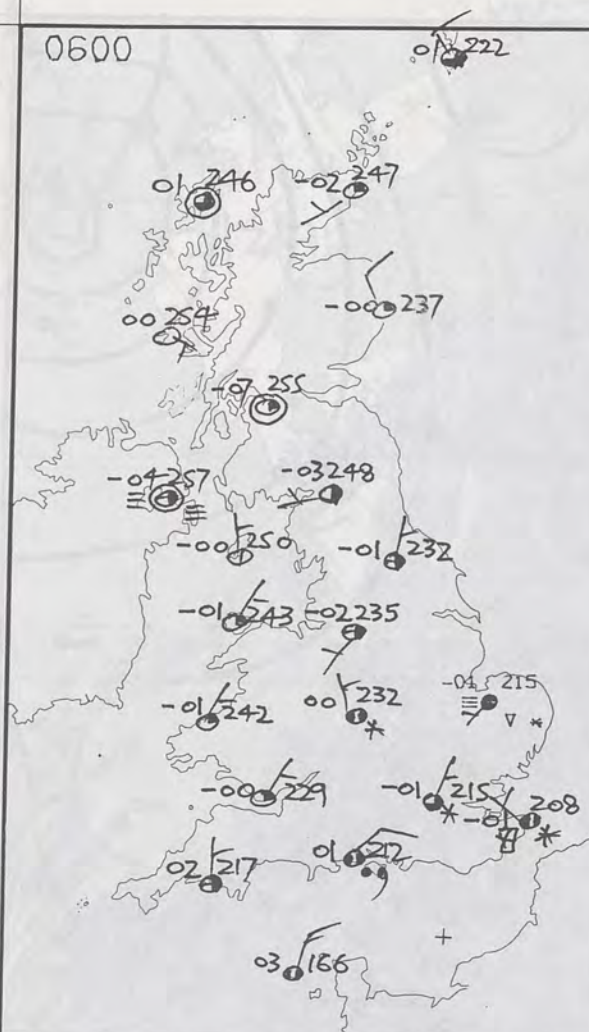 0600
01 222
01 246
-02 247
00 254
-00 237
-07 255
-04 257
-03 248
-00 250
-01 232
-01 243
-02 235
-01 242
00 232
-01 215
-00 229
-01 215
-01 208
02 217
01 212
03 166